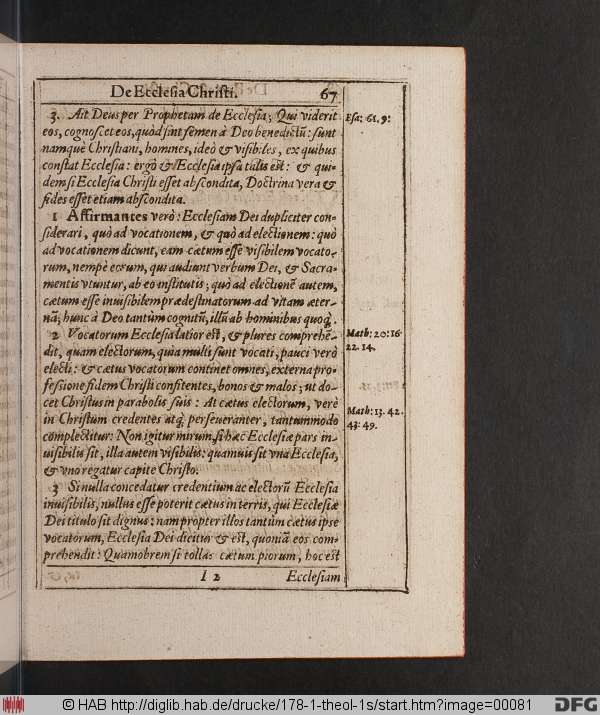 De Ecclesia Christi. 67
3. Ait Deus per Prophetam de Ecclesia; Qui viderit
eos, cognoscet eos, quòd sint semen à Deo benedictũ: sunt
namque Christiani, homines, ideò & visibiles, ex quibus
constat Ecclesia: ergò & Ecclesia ipsa talis est: & qui-
dem si Ecclesia Christi esset abscondita, Doctrina vera &
fides esset etiam abscondita.
1 Affirmantes verò: Ecclesiam Dei dupliciter con-
siderari, quò ad vocationem, & quò ad electionem: quò
ad vocationem dicunt, eam cætum esse visibilem vocato-
rum, nempè eorum, qui audiunt verbum Dei, & Sacra-
mentis vtuntur, ab eo institutis; quò ad electionẽ autem,
cætum esse inuisibilem prædestinatorum ad vitam æter-
nã; hunc à Deo tantùm cognitũ, illũ ab hominibus quoq;.
2 Vocatorum Ecclesia latior est, & plures comprehẽ-
dit, quam electorum, quia multi sunt vocati, pauci verò
electi: & cætus vocatorum continet omnes, externa pro-
fessione fidem Christi confitentes, bonos & malos; ut do-
cet Christus in parabolis suis: At cætus electorum, verè
in Christum credentes atq; perseueranter, tantummodo
complectitur: Non igitur mirum, si hæc Ecclesiæ pars in-
uisibilis sit, illa autem visibilis: quamuis sit vna Ecclesia,
& vno regatur capite Christo.
3 Si nulla concedatur credentium ac electorũ Ecclesia
inuisibilis, nullus esse poterit cætus in terris, qui Ecclesiæ
Dei titulo sit dignus: nam propter illos tantùm cætus ipse
vocatorum, Ecclesia Dei dicitur & est, quoniã eos com-
prehendit: Quamobrem si tollas cætum piorum, hoc est
I 2 Ecclesiam
Esa: 61. 9:
Math: 20: 16
22. 14.
Math: 13. 42.
43: 49.
© HAB http://diglib.hab.de/drucke/178-1-theol-1s/start.htm?image=00081
DFG